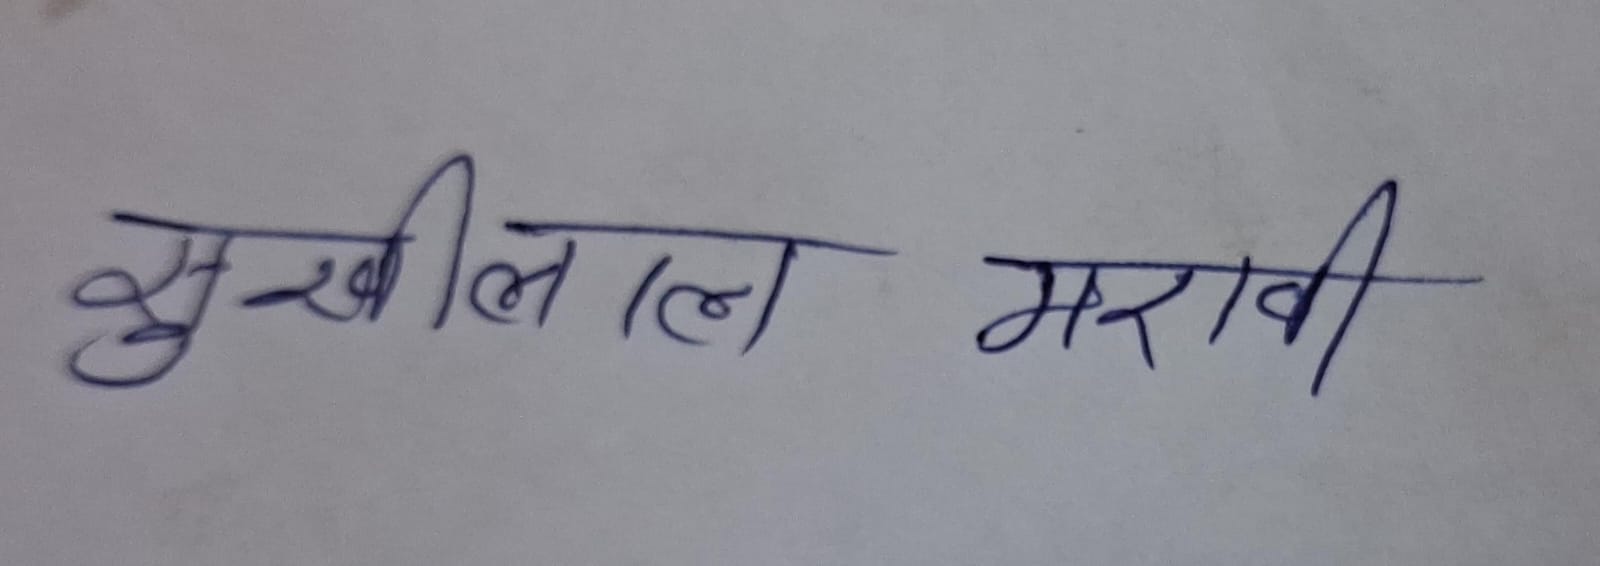 सुखीलाल मरावी